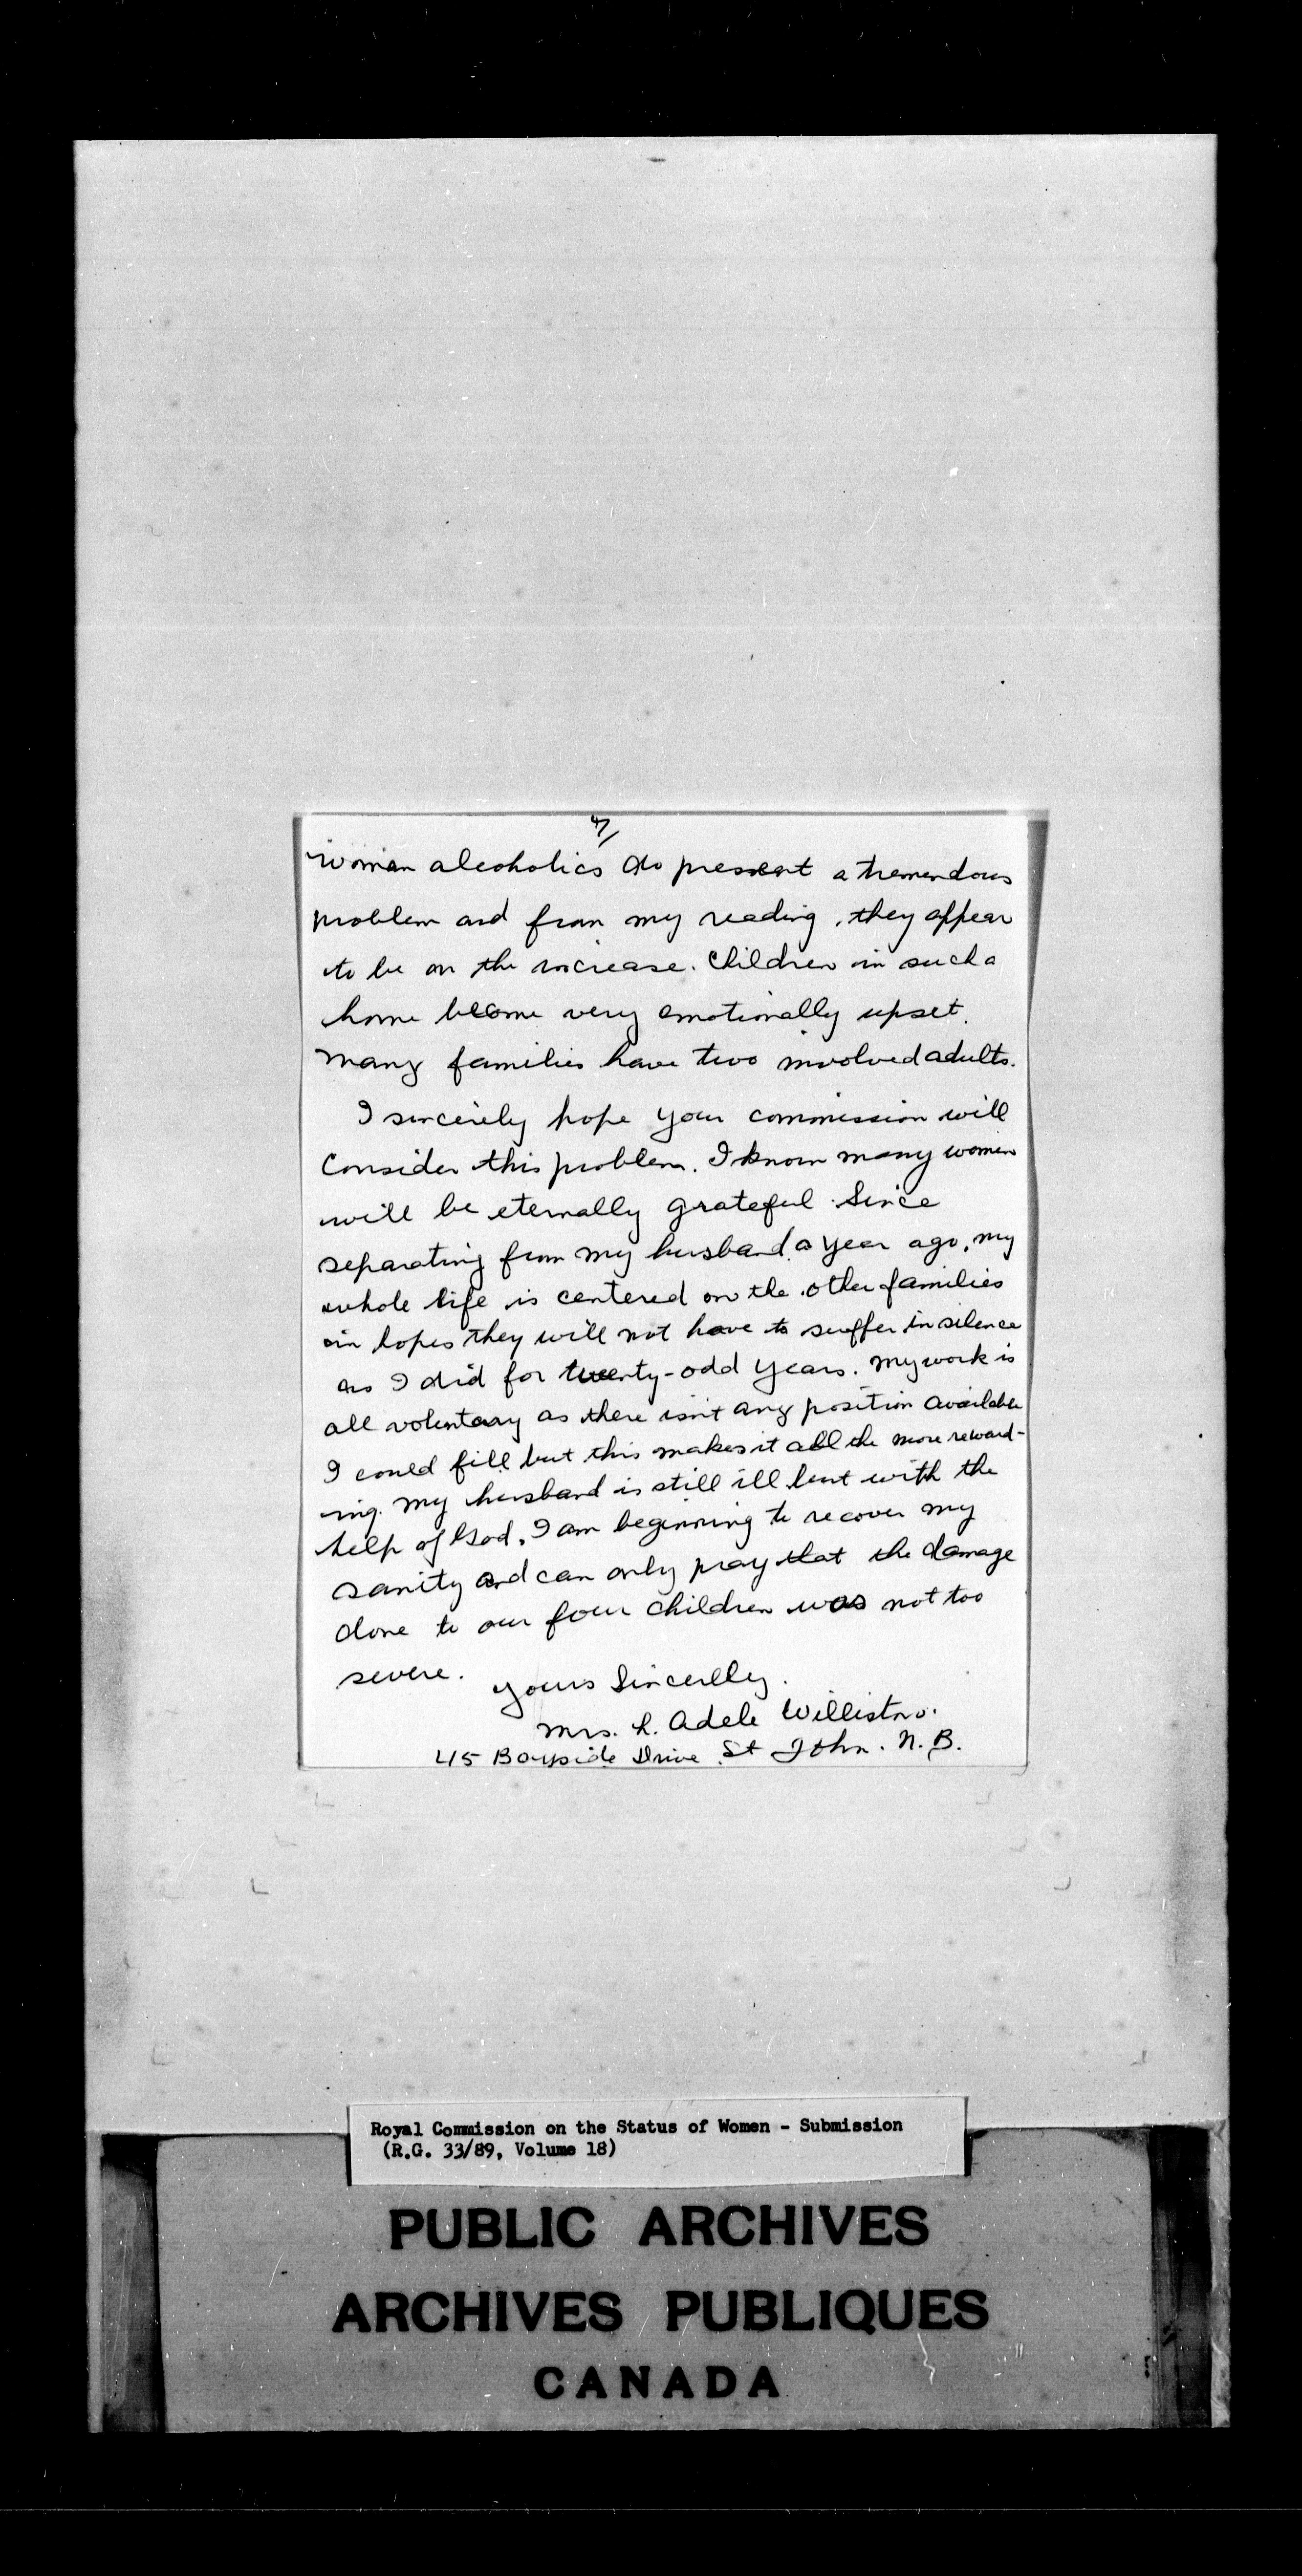 4/
Woman alcoholics do present a tremendous
problem and from my reading, they appear
to be on the increase. Children in such a
home become very emotionally upset.
Many families have two involved adults.
I sincerely hope your commission will
consider this problem. I know many women
will be eternally grateful. Since
separating from my husband a year ago, my
whole life is centered on the other families
in hopes they will not have to suffer in silence
as I did for twenty-odd years. My work is
all voluntary as there isn't any position available
I could fill but this makes it all the more reward-
ing. My husband is still ill but with the
help of God, I am beginning to recover my
sanity and can only pray that the damage
done to our four children was not too
severe.
Yours Sincerely.
Mrs. L. Adele Williston.
45 Bayside Drive St John. N.B.
Royal Commission on the Status of Women - Submission
(R.G. 33/89, Volume 18)
PUBLIC ARCHIVES
ARCHIVES PUBLIQUES
CANADA